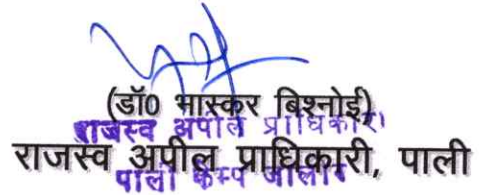 (डॉ0 भास्कर बिश्नोई)
राजस्व अपील प्राधिकारी
राजस्व अपील प्राधिकारी, पाली
पाली कैम्प जालोर